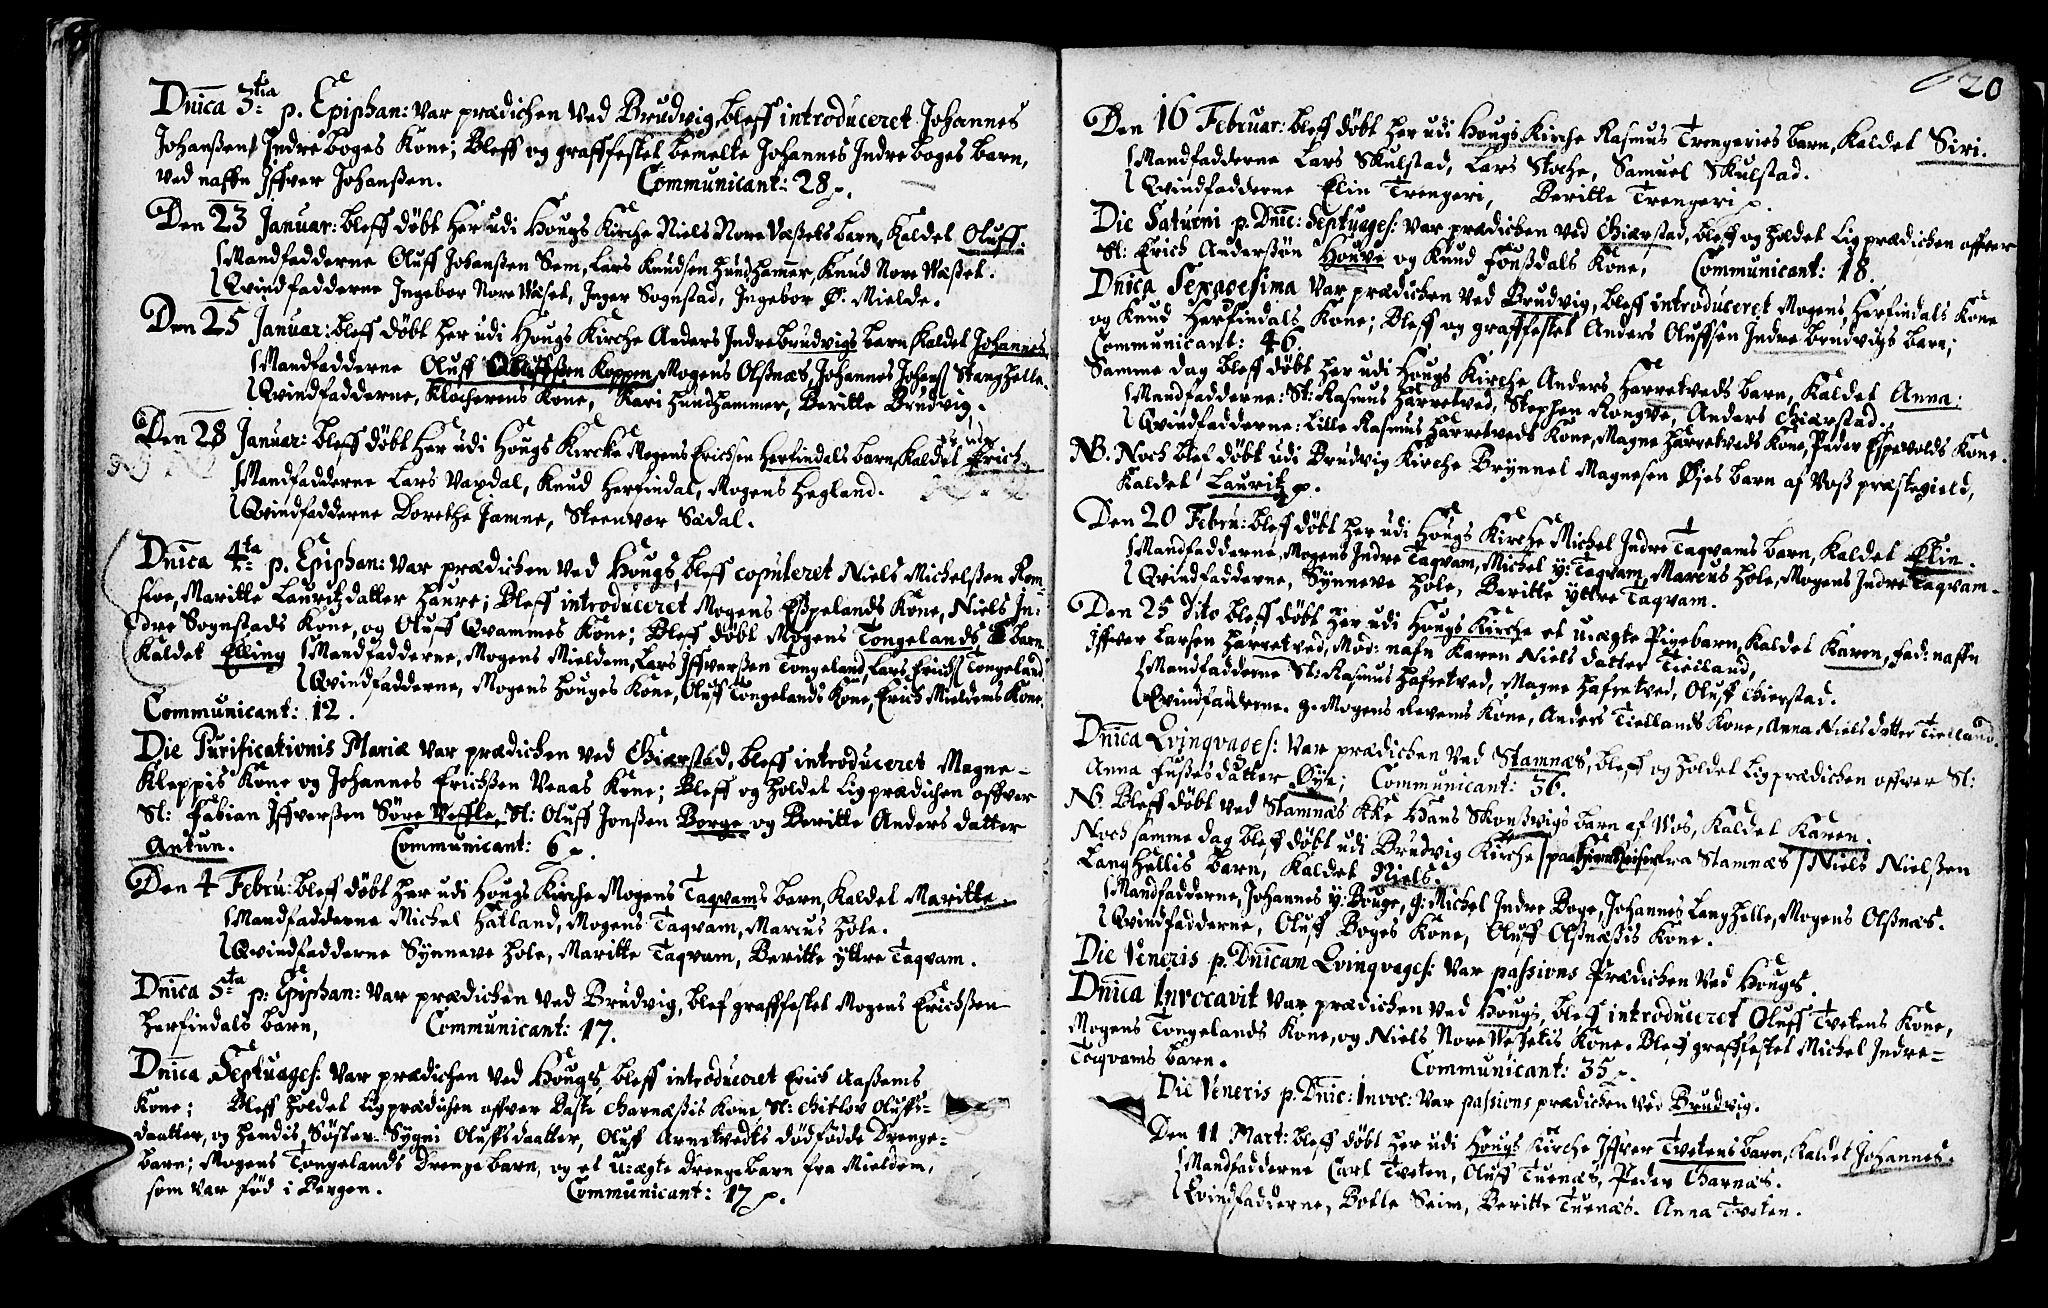 Dnica 3tia p. Epiphan: Var prædichen Ved Brudvig, bleff introduceret Johannes
Johanßen Indre boges Kone; Bleff og grafffestet bemelte Johannes Indre boges barn,
ved naffn Iffver Johanßen. Communicant: 28 p.
Den 23 Januar: bleff döbt her udi Hougs Kirche Niels Nore Væßets barn, Kaldet Oluff.
Mandfadderne Oluff Johanßen Sem, Lars Knudsen Hundhamer, Knud Nore Wæßet.
Qvindfadderne Ingebor Nore Wæset, Inger Sognstad, Ingebor Ø. Mielde.
Den 25 Januar: bleff döbt her udi Hougs Kirche Anders Indrebrudvigs barn Kaldet Johannes
Mandfadderne Oluff Koppen, Mogens Olßnæs, Johannes Johanß Stanghelle.
Qvindfadderne, Klocherens Kone, Kari Hundhammer, Beritte Brudvig.
Den 28 Januar: bleff döbt her udi Hougs Kircke Mogens Erichsen Herfindals barn, Kaldet Erich.
Mandfadderne Lars Vaxdal, Knud Herfindal, Mogens Hegland.
Qvindfadderne Dorethe Jamne, Steenvor Sædal.
Dnica 4ta p. Epiphan: Var prædichen Ved Hougs, bleff copuleret Niels Michelßen Rom-
sloe, Maritte Lauritzdatter Haure; Bleff introduceret Mogens Eßpelands Kone, Niels In-
dre Sognstads Kone, og Oluff Qvammes Kone; Bleff döbt Mogens Tongelands barn
Kaldet Elling Mandfadderne, Mogens Mieldem, Lars Iffverßen Tongeland, Lars Erichß Tongeland
Qvindfadderne, Mogens Houges Kone, Oluff Tongelands Kone, Erich Mieldems Kone.
Communicant: 12.
Die Purificationis Mariæ Var prædichen ved Giærstad, bleff introduceret Magne-
Kleppis Kone og Johannes Erichßen Veaas Kone; Bleff og holdet Ligprædichen offver
Sl: Fabian Iffverßen Söre Veffle, Sl: Oluff Jonßen Borge og Beritte Anders datter
Antun. Communicant: 6 p.
Den 4 Febru: bleff döbt her udi Hougs Kirche Mogens Taqvams barn, Kaldet Maritte.
Mandfadderne Michel Hatland, Mogens Taqvam, Marcus Hole.
Qvindfadderne Synneve Hole, Maritte Taqvam, Beritte yttre Taqvam.
Dnica 5ta p: Epiphan: Var prædichen Ved Brudvig, blef grafffestet Mogens Erichßen
Herfindals barn, Communicant: 17.
Dnica Septuages: Var prædichen Ved Hougs, bleff introduceret Erich Aaßems
Kone; Bleff holdet Ligprædichen offver Baste Garnæßis Kone Sl: Gitlov Oluffs-
daatter, og hendis Söster Sygni Oluffsdaatter, Oluff Arnetvedts dödfödde Drenge-
barn; Mogens Tongelands drengebarn, og et uægte drengebarn fra Mieldem,
som var föd i Bergen. Communicant: 17 p.
20
Den 16 Februar: bleff döbt her udi Hougs Kirche Rasmus Trengeries barn, Kaldet Siri.
Mandfadderne Lars Skulstad, Lars Stoche, Samuel Skulstad.
Qvindfadderne Elin Trengeri, Beritte Trengeri p.
Die Saturni p. Dnic: Septuages: Var prædichen ved Giærstad, bleff og holdet Ligprædichen offver
Sl: Erich Anderßön Houve og Knud Foußdals Kone, Communicant: 18.
Dnica Sexagesima Var prædichen Ved Brudvig, bleff introduceret Mogens Herfindals Kone
og Knud Herfindals Kone; Bleff og grafffestet Anders Oluffsen Indre brudvigs barn;
Communicant: 46.
Samme dag bleff döbt her udi Hougs Kirche Anders Harretveds barn, Kaldet Anna.
Mandfadderne: St: Rasmus Harretved, Stephen Rongve, Anders Giærstad.
Qvindfadderne: Lille Rasmus Harretveds Kone, Magne Harretveds Kone, Peder Espevolds Kone.
NB. Noch blef döbt udi Brudvig Kirche Brynnel Magnesen Øyes barn af Voß præstegield,
Kaldet Lauritz p.
Den 20 Febru: bleff döbt her udi Hougs Kirche Michel Indre Taqvams barn, Kaldet Elin.
Mandfadderne, Mogens Indre Taqvam, Michel y: Taqvam, Marcus Hole, Mogens Indre Taqvam.
Qvindfadderne, Synneve Hole, Beritte yttre Taqvam.
Den 25 dito bleff döbt her udi Hougs Kirche et uægte Pigebarn, Kaldet Karen, fad: naffn
Iffver Larsen Harretved, Mod: nafn Karen Niels datter Tielland,
Mandfadderne St: Rasmus Hafretved, Magne Hafretved, Oluff Gierstad.
Qvindfadderne. g. Mogens Revems Kone, Anders Tiellands Kone, Anna Niels datter Tielland.
Dnica Qvinqvages: Var prædichen Ved Stamnæs, bleff og holdet Ligprædichen offver Sl:
Anna Fußesdatter Øye; Communicant: 56.
NB. Bleff döbt ved Stamnæs Kke Hans Skoußvigs barn af Vos, Kaldet Karen.
Noch samme dag bleff döbt udi Brudvig Kirche fra Stamnæs Niels Nielßen
Langhellis barn, Kaldet Niels.
Mandfadderne, Johannes y: Bouge, g: Michel Indre Boge, Johannes Langhelle, Mogens Olßnæs.
Qvindfadderne, Oluff Boges Kone, Oluff Olßnæßis Kone.
Die Veneris p. Dnicam Qvinqvages: Var passions Prædichen Ved Hougs.
Dnica Invocavit Var prædichen ved Hougs, bleff introduceret Oluff Tvetens Kone,
Mogens Tongelands Kone, og Niels Nore Weßetis Kone. Bleff grafffestet Michel Indre-
Taqvams barn. Communicant: 35 p.
Die Veneris p. Dnic: Invoc: Var passions prædichen Ved Brudvig.
Den 11 Mart: bleff döbt her udi Hougs Kirche Iffver Tvetens barn, Kaldet Johannes.
Mandfadderne Carl Tveten, Oluff Tuenæs, Peder Garnæs.
Qvindfadderne, Botle Seim, Beritte Tuenæs. Anna Tveten.